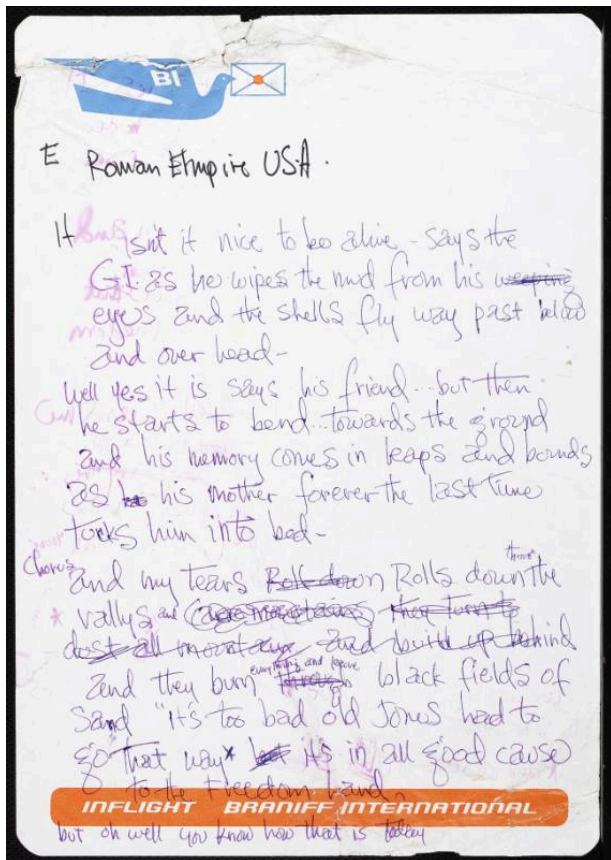 BI
E Roman Empire USA.
It Isn't it nice to be alive - says the
G.I. as he wipes the mud from his weeping
eyes and the shells fly way past below
and over head -
well yes it is says his friend... but then
he starts to bend... towards the ground
and his memory comes in leaps and bounds
as his mother forever the last Time
tucks him into bed -
Chorus and my Tears Roll down Rolls down the
* vallys and they turn to
dust all mountains and build up behind
everything and leave
and they burn through black fields of
Sand "it's too bad old Jones had to
go that way* but it's in all good cause
to the Freedom hand,
INFLIGHT BRANIFF INTERNATIONAL
but oh well you know how that is today